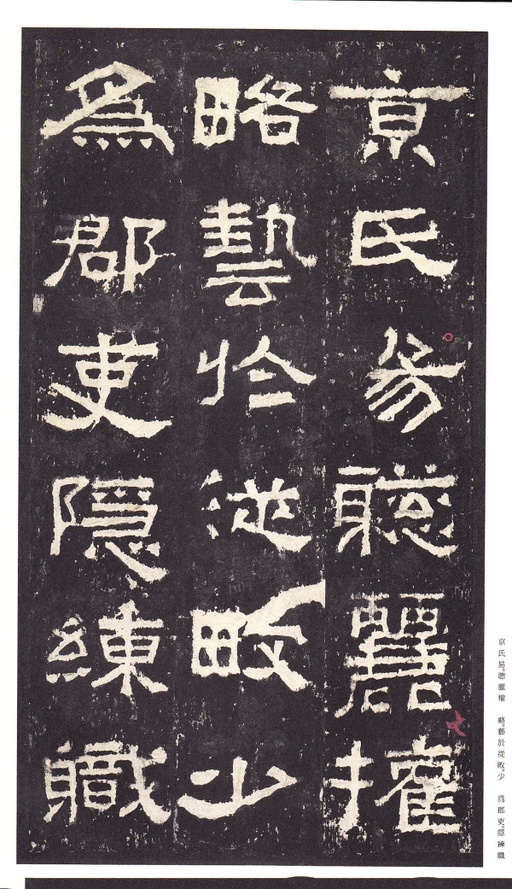 京氏易聰麗權
略藝於從畋少
為郡吏隱練職
京氏易聰麗權　略藝於從畋少　為郡吏隱練職